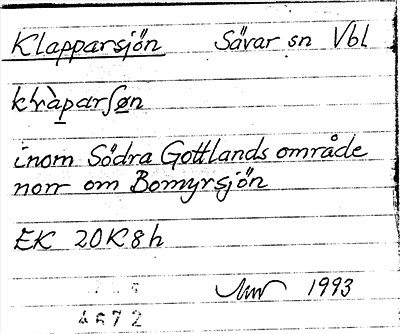 Klapparsjön Sävar sn Vbl
inom Södra Gottlands område
norr om Bomyrsjön
EK 20K8h
1993
4672